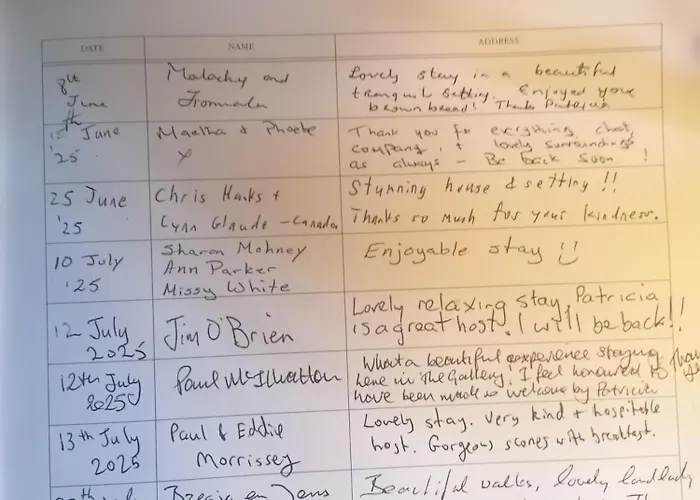 DATE NAME ADDRESS
8th June
Malachy and
Lovely stay in a beautiful
tranquil setting. Enjoyed your
brown bread! Thanks Patricia
June '25
& Phoebe
x
Thank you for everything, chat,
company, + lovely surroundings
as always – Be back soon!
25 June '25
Chris Hanks +
Lynn Glaude – Canada
Stunning house & setting!!
Thanks so much for your kindness.
10 July '25
Sharon Mohney
Ann Parker
Missy White
Enjoyable stay
12 July 2025
Jim O'Brien
Lovely relaxing stay, Patricia
is a great host. I will be back!!
12th July 2025
Paul
What a beautiful experience staying
here in The Gallery! I feel honoured to
have been made so welcome by Patricia
13th July 2025
Paul & Eddie
Morrissey
Lovely stay. Very kind + hospitable
host. Gorgeous scones with breakfast.
Beautiful walks, lovely landlady